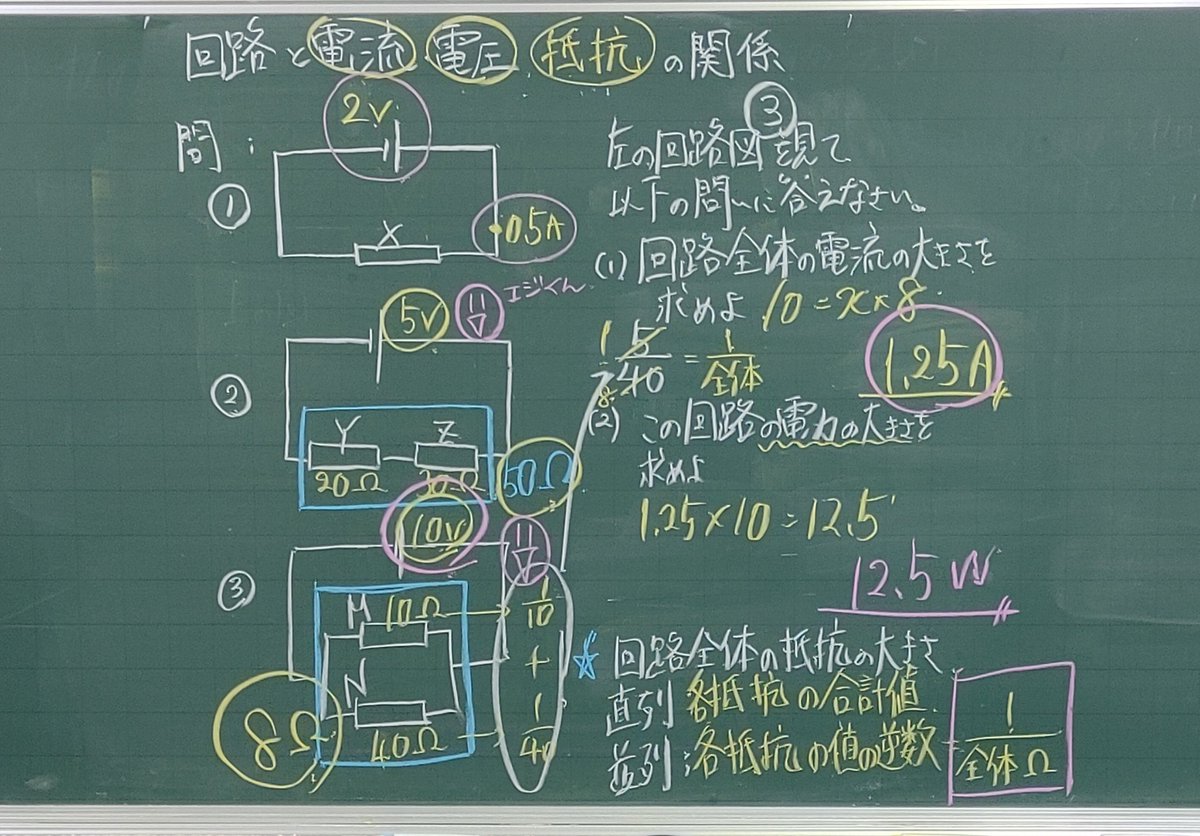 回路と電流 電圧 抵抗の関係
問:
①
2V
X
0.5A
②
5V
エジくん
Y
Z
20Ω
30Ω
50Ω
③
10V
M
10Ω
1/10
+
N
40Ω
1/40
8Ω
左の回路図③を見て
以下の問いに答えなさい。
(1) 回路全体の電流の大きさを
求めよ 10=x×8
1/8 5/40=1/全体
1.25A
(2) この回路の電力の大きさを
求めよ
1.25×10=12.5
12.5W
☆ 回路全体の抵抗の大きさ
直列 各抵抗の合計値
並列:各抵抗の値の逆数=1/全体Ω